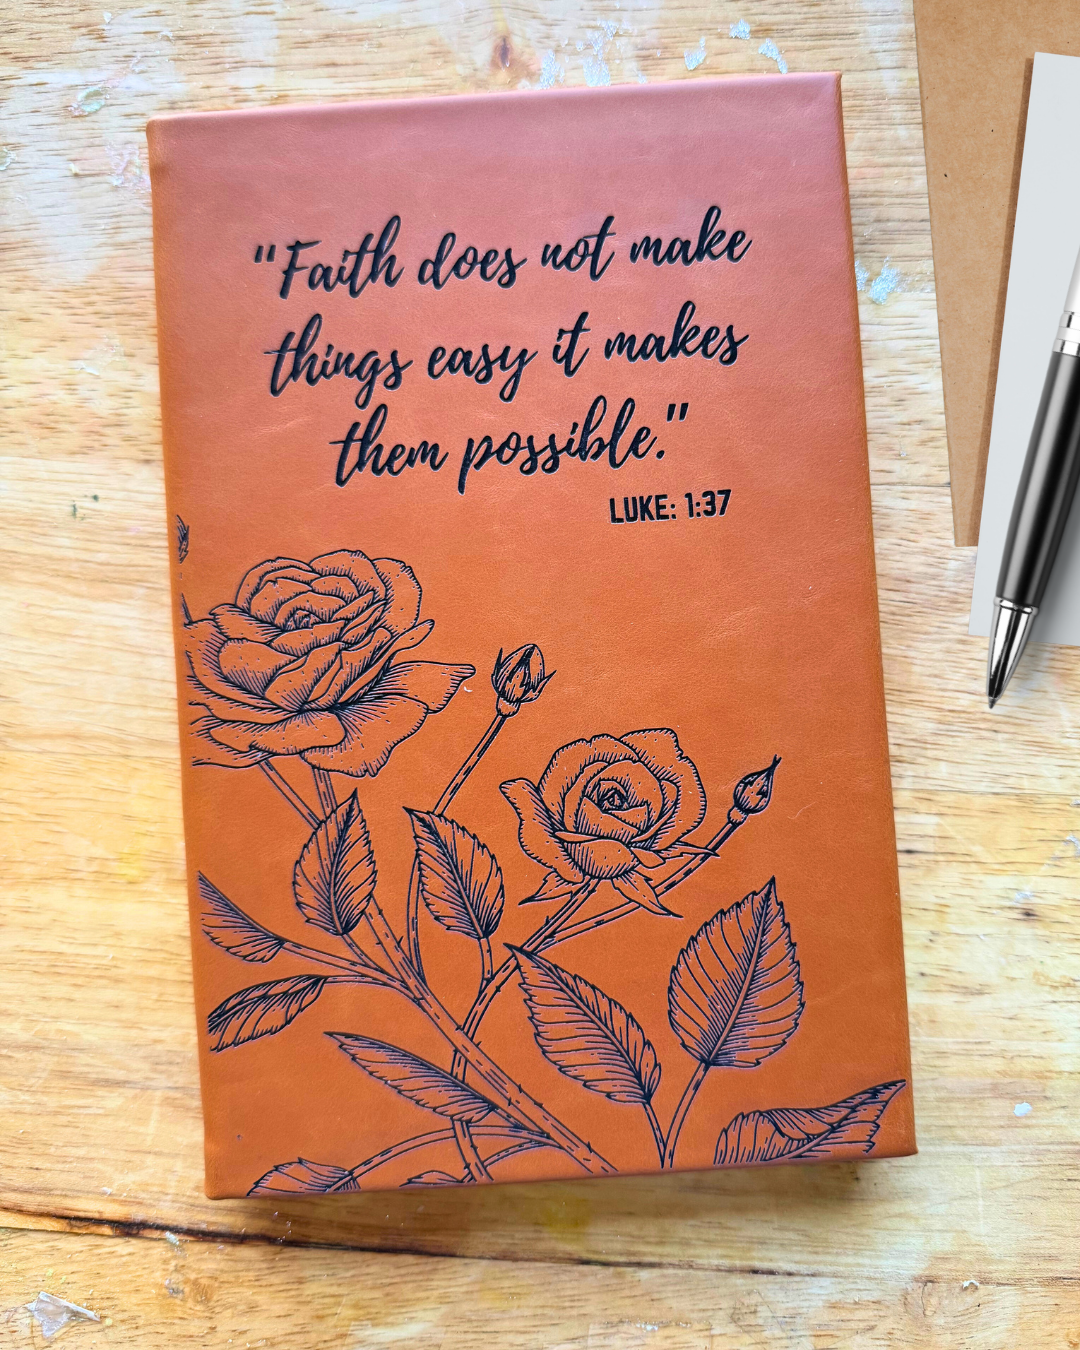 "Faith does not make
things easy it makes
them possible."
LUKE: 1:37